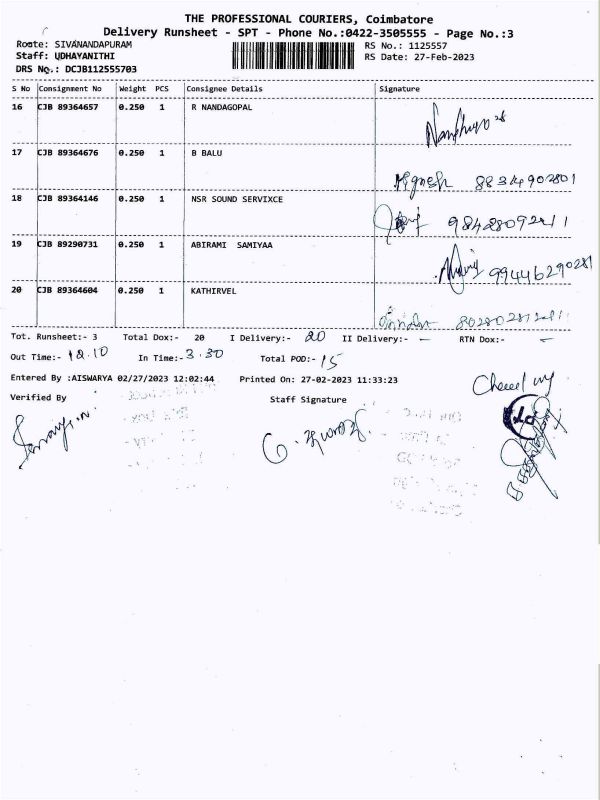 THE PROFESSIONAL COURIERS, Coimbatore
Delivery Runsheet - SPT - Phone No.:0422-3505555 - Page No.:3
Route: SIVANANDAPURAM RS No.: 1125557
Staff: UDHAYANITHI RS Date: 27-Feb-2023
DRS No.: DCJB112555703
S No Consignment No Weight PCS Consignee Details Signature
16 CJB 89364657 0.250 1 R NANDAGOPAL
17 CJB 89364676 0.250 1 B BALU
8834902801
18 CJB 89364146 0.250 1 NSR SOUND SERVIXCE
19 CJB 89290731 0.250 1 ABIRAMI SAMIYAA
99446290281
20 CJB 89364604 0.250 1 KATHIRVEL
Tot. Runsheet:- 3 Total Dox:- 20 I Delivery:- 20 II Delivery:- - RTN Dox:- -
Out Time:- 12.10 In Time:- 3.30 Total POD:- 15
Entered By :AISWARYA 02/27/2023 12:02:44 Printed On: 27-02-2023 11:33:23
Verified By Staff Signature